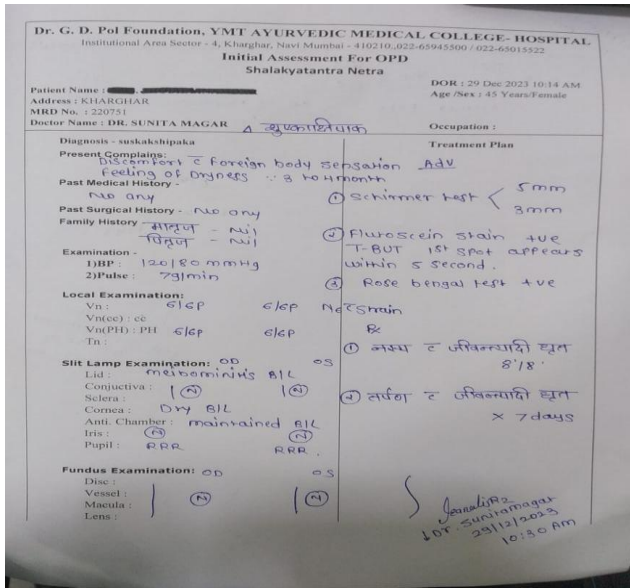 Dr. G. D. Pol Foundation, YMT AYURVEDIC MEDICAL COLLEGE- HOSPITAL
Institutional Area Sector - 4, Kharghar, Navi Mumbai - 410210.,022-65945500 / 022-65015522
Initial Assessment For OPD
Shalakyatantra Netra
DOR : 29 Dec 2023 10:14 AM
Patient Name :
Age /Sex : 45 Years/Female
Address : KHARGHAR
MRD No. : 220751
Doctor Name : DR. SUNITA MAGAR
Δ शुष्काक्षिपाक
Occupation :
Diagnosis - suskakshipaka
Treatment Plan
Present Complains:
Discomfort c̄ Foreign body sensation
Feeling of Dryness ∵ 3 to 4 month
Past Medical History -
No any
Past Surgical History - No any
Family History मातृज - Nil
पितृज - Nil
Examination -
1)BP : 120/80 mmHg
2)Pulse : 79/min
Local Examination:
Vn : 6/6P 6/6P
Vn(cc) : cc
Vn(PH) : PH 6/6P 6/6P
Tn :
Slit Lamp Examination: OD OS
Lid : meibominitis B/L
Conjuctiva : N N
Sclera :
Cornea : Dry B/L
Anti. Chamber : maintained B/L
Iris : N N
Pupil : RRR RRR
Fundus Examination: OD OS
Disc :
Vessel : N N
Macula :
Lens :
Adv
① Schirmer test < 5mm
3mm
② Fluroscein stain +ve
T-BUT 1st spot appears
within 5 second.
③ Rose bengal test +ve
Rx
① नस्य c̄ जीवन्त्यादी घृत
8'/8'
② तर्पण c̄ जीवन्त्यादी घृत
× 7 days
Dr. Sunitamagar
29/12/2023
10:30 Am